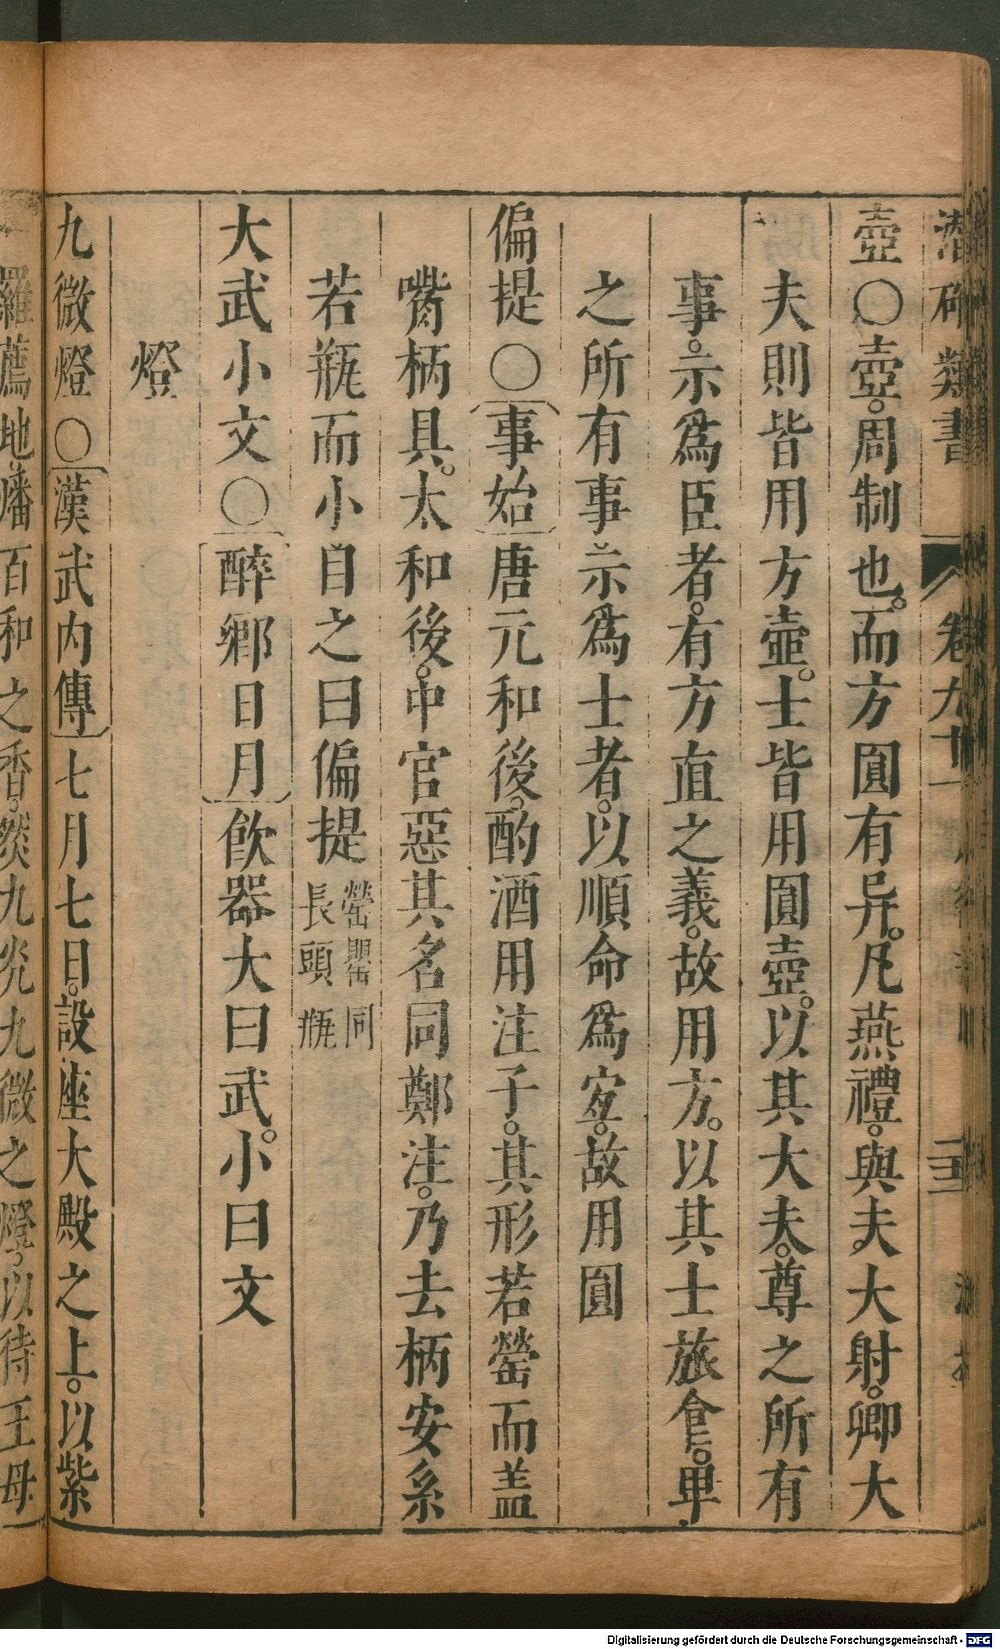 潛確類書 卷九十一 三十三
壺○壺。周制也。而方圓有异。凡燕禮。與夫。大射。卿大
夫則皆用方壺。士皆用圓壺。以其大夫。尊之所有
事。示爲臣者。有方直之義。故用方。以其士旅食。卑
之所有事示爲士者。以順命爲宐。故用圓
偏提○事始唐元和後。酌酒用注子。其形若罃而盖
觜柄具。太和後。中官惡其名同鄭注。乃去柄安系
若瓶而小目之曰偏提罃罌同長頭瓶
大武小文○醉鄉日月飮器大曰武。小曰文
燈
九微燈○漢武内傳七月七日。設座大殿之上。以紫
羅薦地。燔百和之香。燃九光九微之燈。以待王母
Digitalisierung gefördert durch die Deutsche Forschungsgemeinschaft - DFG